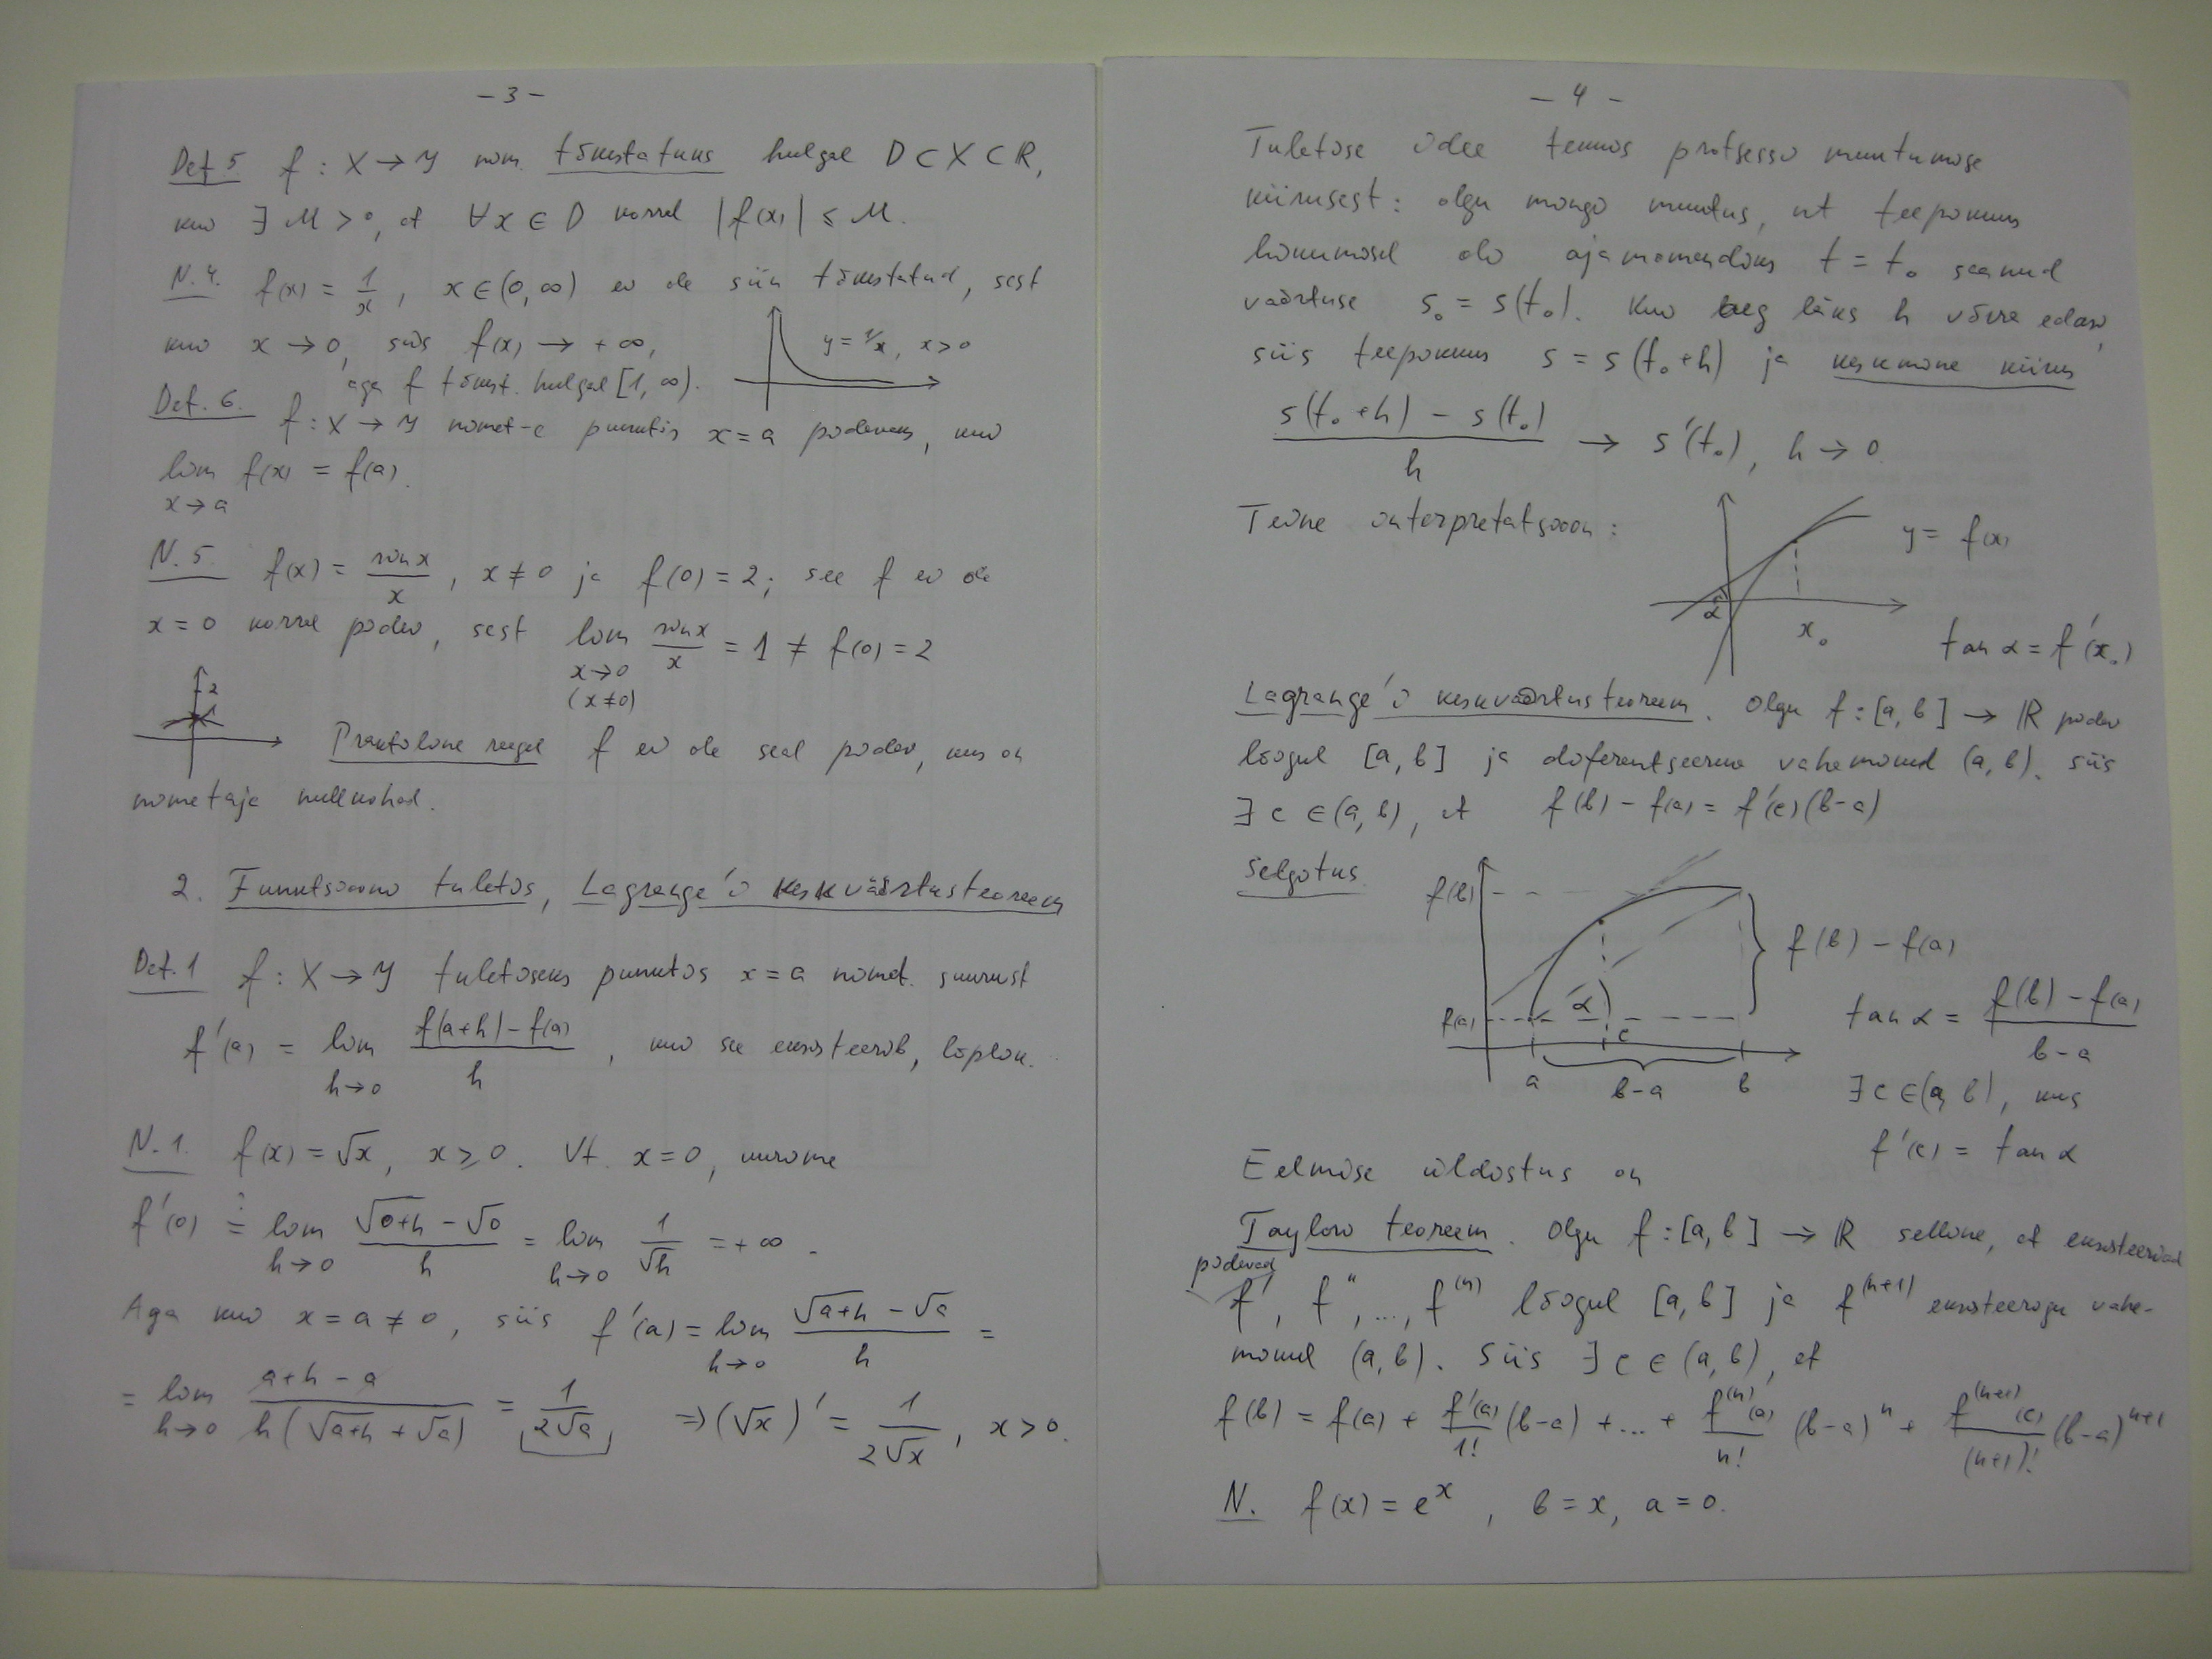 - 3 -
Def. 5 f : X → Y nim. tõkestatuks hulgal D ⊂ X ⊂ ℝ,
kui ∃ M > 0, et ∀x ∈ D korral |f(x)| ≤ M.
N. 4. f(x) = 1/x, x ∈ (0, ∞) ei ole siin tõkestatud, sest
kui x → 0, siis f(x) → +∞,
y = 1/x, x > 0
aga f tõkest. hulgal [1, ∞).
Def. 6. f : X → Y nimet-e punktis x = a pidevaks, kui
lim_{x→a} f(x) = f(a).
N. 5 f(x) = sin x / x, x ≠ 0 ja f(0) = 2; see f ei ole
x = 0 korral pidev, sest lim_{x→0 (x≠0)} sin x / x = 1 ≠ f(0) = 2
2
Praktiline reegel f ei ole seal pidev, kus on
nimetaja nullkohad.
2. Funktsiooni tuletis, Lagrange'i keskväärtusteoreem
Def. 1 f : X → Y tuletiseks punktis x = a nimet. suurust
f'(a) = lim_{h→0} (f(a+h) - f(a))/h, kui see eksisteerib, lõplik.
N. 1. f(x) = √x, x ≥ 0. Vt. x = 0, uurime
f'(0) ≟ lim_{h→0} (√(0+h) - √0)/h = lim_{h→0} 1/√h = +∞.
Aga kui x = a ≠ 0, siis f'(a) = lim_{h→0} (√(a+h) - √a)/h =
= lim_{h→0} (a+h-a)/(h(√(a+h) + √a)) = 1/(2√a) ⇒ (√x)' = 1/(2√x), x > 0.
- 4 -
Tuletise idee tekkis protsessi muutumise
kiirusest: olgu mingi muutus, nt teepikkus
liikumisel oli ajamomendiks t = t₀ saanud
väärtuse s₀ = s(t₀). Kui aeg läks h võrra edasi,
siis teepikkus s = s(t₀+h) ja keskmine kiirus
(s(t₀+h) - s(t₀))/h → s'(t₀), h → 0
Teine interpretatsioon:
y = f(x)
α
x₀
tan α = f'(x₀)
Lagrange'i keskväärtusteoreem. Olgu f : [a, b] → ℝ pidev
lõigul [a, b] ja diferentseeruv vahemikul (a, b). Siis
∃ c ∈ (a, b), et f(b) - f(a) = f'(c)(b-a)
Selgitus
f(b)
f(b) - f(a)
α
f(a)
c
a b-a b
tan α = (f(b) - f(a))/(b-a)
∃ c ∈ (a, b), kus
f'(c) = tan α
Eelmise üldistus on
Taylori teoreem. Olgu f : [a, b] → ℝ selline, et eksisteerivad
pidevad
f', f'', ..., f⁽ⁿ⁾ lõigul [a, b] ja f⁽ⁿ⁺¹⁾ eksisteerigu vahe-
mikul (a, b). Siis ∃ c ∈ (a, b), et
f(b) = f(a) + f'(a)/1! (b-a) + ... + f⁽ⁿ⁾(a)/n! (b-a)ⁿ + f⁽ⁿ⁺¹⁾(c)/(n+1)! (b-a)ⁿ⁺¹
N. f(x) = eˣ, b = x, a = 0.